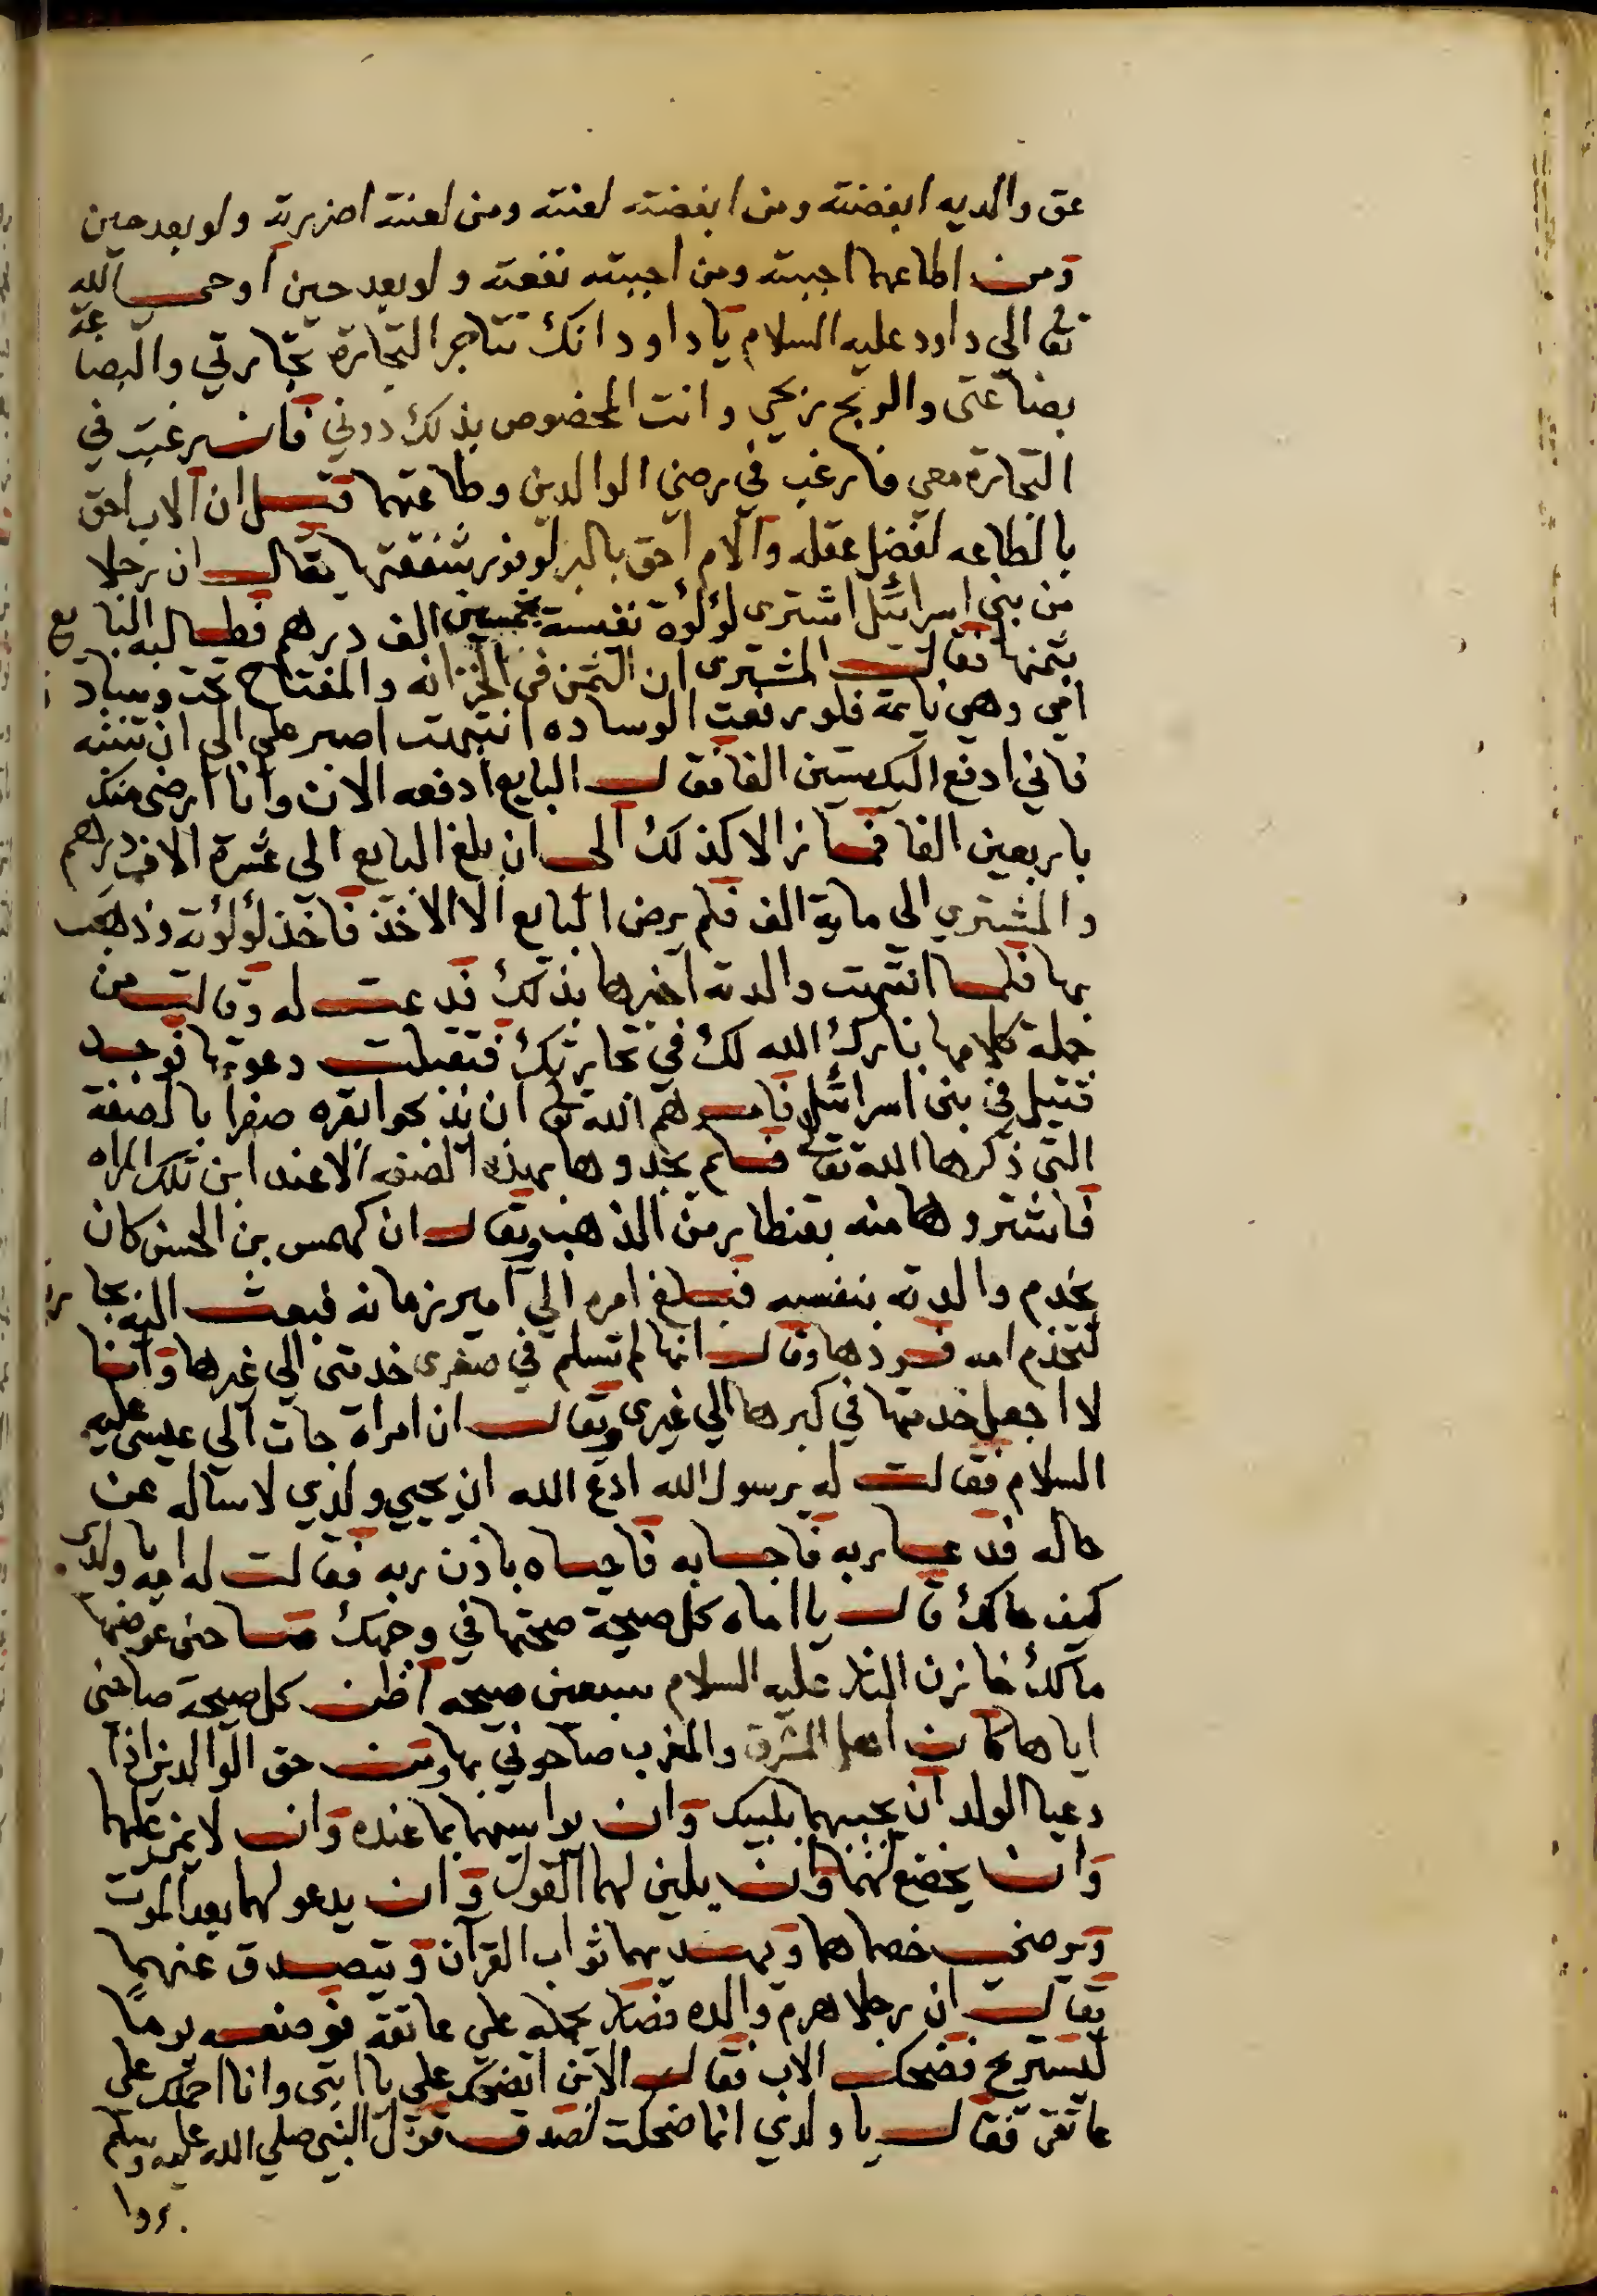 عق والديه ابغضته ومن ابغضته لعنته ومن لعنته اضررته ولو بعد حين
ومن اطاعهما احببته ومن احببته نفعته ولو بعد حين اوحى الله
تعالى الي داود عليه السلام يا داود انك تتاجر التجارة تجارتي والبضاعة
بضاعتى والربح ربحي وانت المخصوص بذلك دوني فان رغبت في
التجارة معي فارغب في رضي الوالدين وطاعتهما قيل ان الاب احق
بالطاعه لفضل عقله والام احق بالبر لوفور شفقتها يقال ان رجلا
من بني اسرائيل اشترى لؤلؤة نفسية بخمسين الف درهم فطالبه البايع
بثمنها فقال المشترى ان الثمن في الخزانه والمفتاح تحت وساد
امي وهي نايمة فلو رفعت الوساده انتبهت اصبر علي الى ان تنتبه
فاني ادفع اليك ستين الفا فقال البايع ادفعه الان وانا ارضى منك
باربعين الفا فما زالا كذلك الى ان بلغ البايع الى عشرة الاف درهم
والمشتري الى ماية الف فلم يرض البايع الا الاخذ فاخذ لؤلؤته وذهب
بها فلما انتبهت والدته اخبرها بذلك فدعت له وقالت من
جملة كلامها بارك الله لك في تجارتك فتقبلت دعوتها فوجد
قتيل في بنى اسرائيل فامرهم الله تعالى ان يذبحوا بقره صفرا بالصفة
التى ذكرها الله تعالى فلم يجدوها بهذه الصفه الا عند ابن تلك المراه
فاشتروها منه بقنطار من الذهب ويقال ان كهمس بن الحسن كان
يخدم والدته بنفسه فبلغ امره الي امير زمانه فبعث اليه بجارية
لتخدم امه فردها وقال انها لم تسلم في صغرى خدمتى الي غيرها وانا
لا اجعل خدمتها في كبرها الي غيرى ويقال ان امراة جات الى عيسى عليه
السلام فقالت له يرسول الله ادع الله ان يحيي ولدي لاساله عن
حاله فدعا ربه فاجابه فاحياه باذن ربه فقالت له امه يا ولدى
كيف حالك قال يا اماه كل صيحة صحتها في وجهك صاحنى عوضها
مالك خازن النار عليه السلام سبعين صيحه اظن كل صيحة صاحنى
اياها كان اهل المشرق والمغرب صاحوني بها ومن حق الوالدين اذا
دعيا الولد ان يجيبهما بلبيك وان يواسيهما بما عنده وان لا يمن عليهما
وان يخضع لهما وان يلين لهما القول وان يدعو لهما بعد الموت
ويرضى خصماهما ويهد لهما ثواب القرآن ويتصدق عنهما
يقال ان رجلا هرم والده فصار يحمله علي عاتقه فوضعه يوما
ليستريح فضحك الاب فقال الابن اتضحك علي يا ابتى وانا احملك على
عاتقى فقال يا ولدي انما ضحكت لصدق قول النبي صلي الله عليه وسلم
بروا